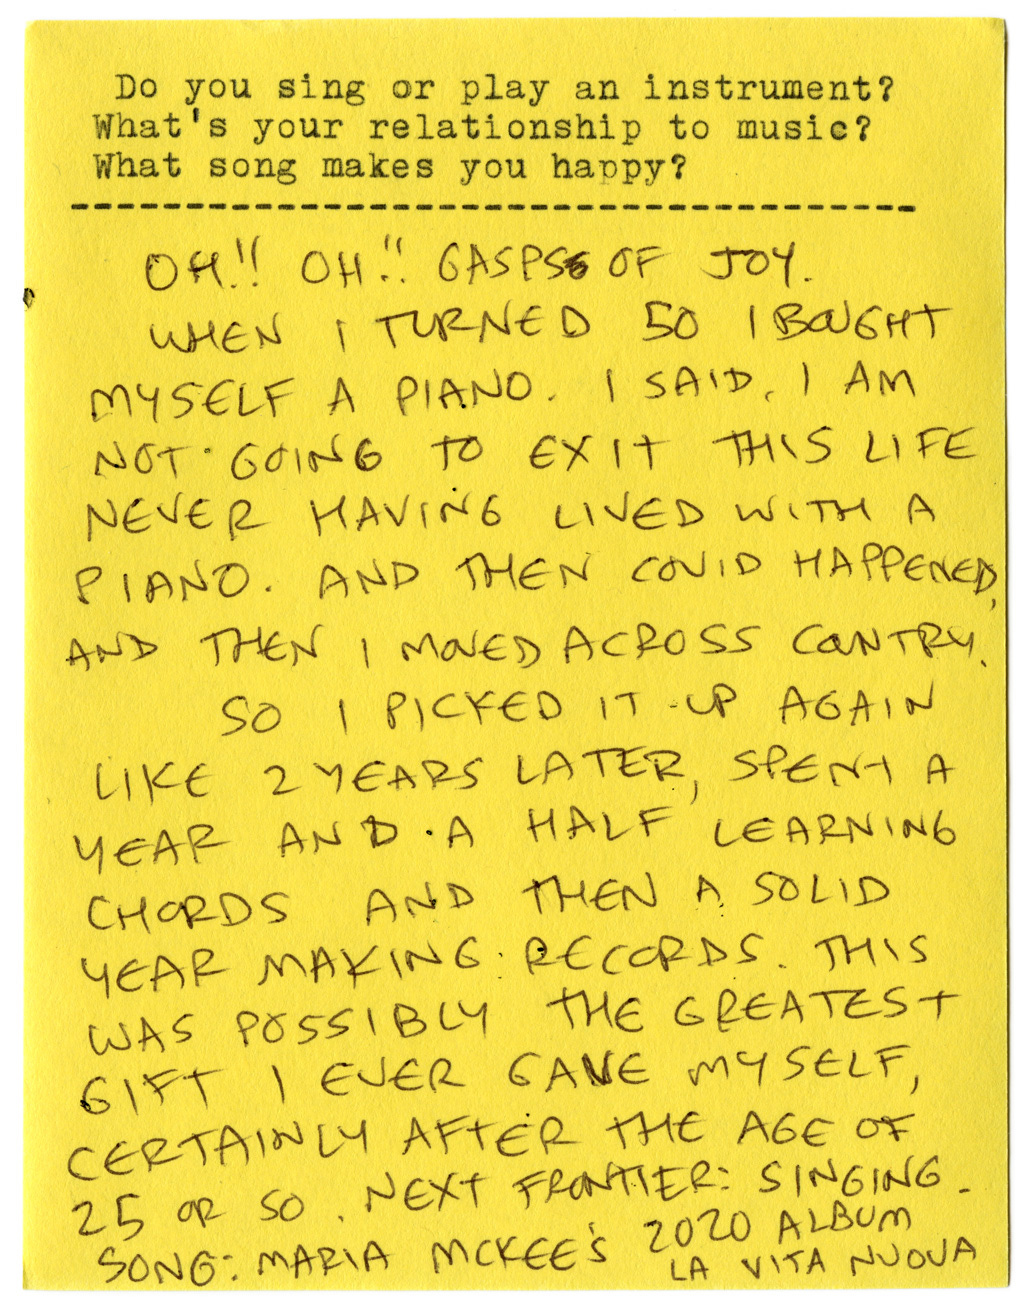 Do you sing or play an instrument?
What's your relationship to music?
What song makes you happy?
OH!! OH!! GASPS OF JOY.
WHEN I TURNED 50 I BOUGHT
MYSELF A PIANO. I SAID, I AM
NOT GOING TO EXIT THIS LIFE
NEVER HAVING LIVED WITH A
PIANO. AND THEN COVID HAPPENED,
AND THEN I MOVED ACROSS COUNTRY.
SO I PICKED IT UP AGAIN
LIKE 2 YEARS LATER, SPENT A
YEAR AND A HALF LEARNING
CHORDS AND THEN A SOLID
YEAR MAKING RECORDS. THIS
WAS POSSIBLY THE GREATEST
GIFT I EVER GAVE MYSELF,
CERTAINLY AFTER THE AGE OF
25 OR SO. NEXT FRONTIER: SINGING.
SONG: MARIA MCKEE'S 2020 ALBUM
LA VITA NUOVA